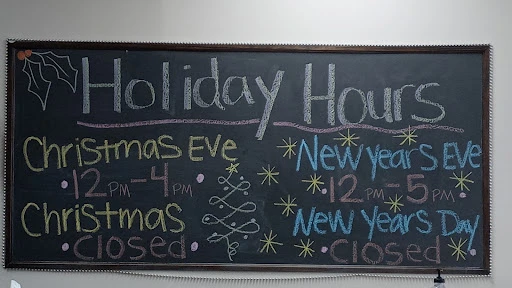 Holiday Hours
Christmas Eve
12 PM - 4 PM
Christmas
Closed
New Years Eve
12 PM - 5 PM
New Years Day
Closed